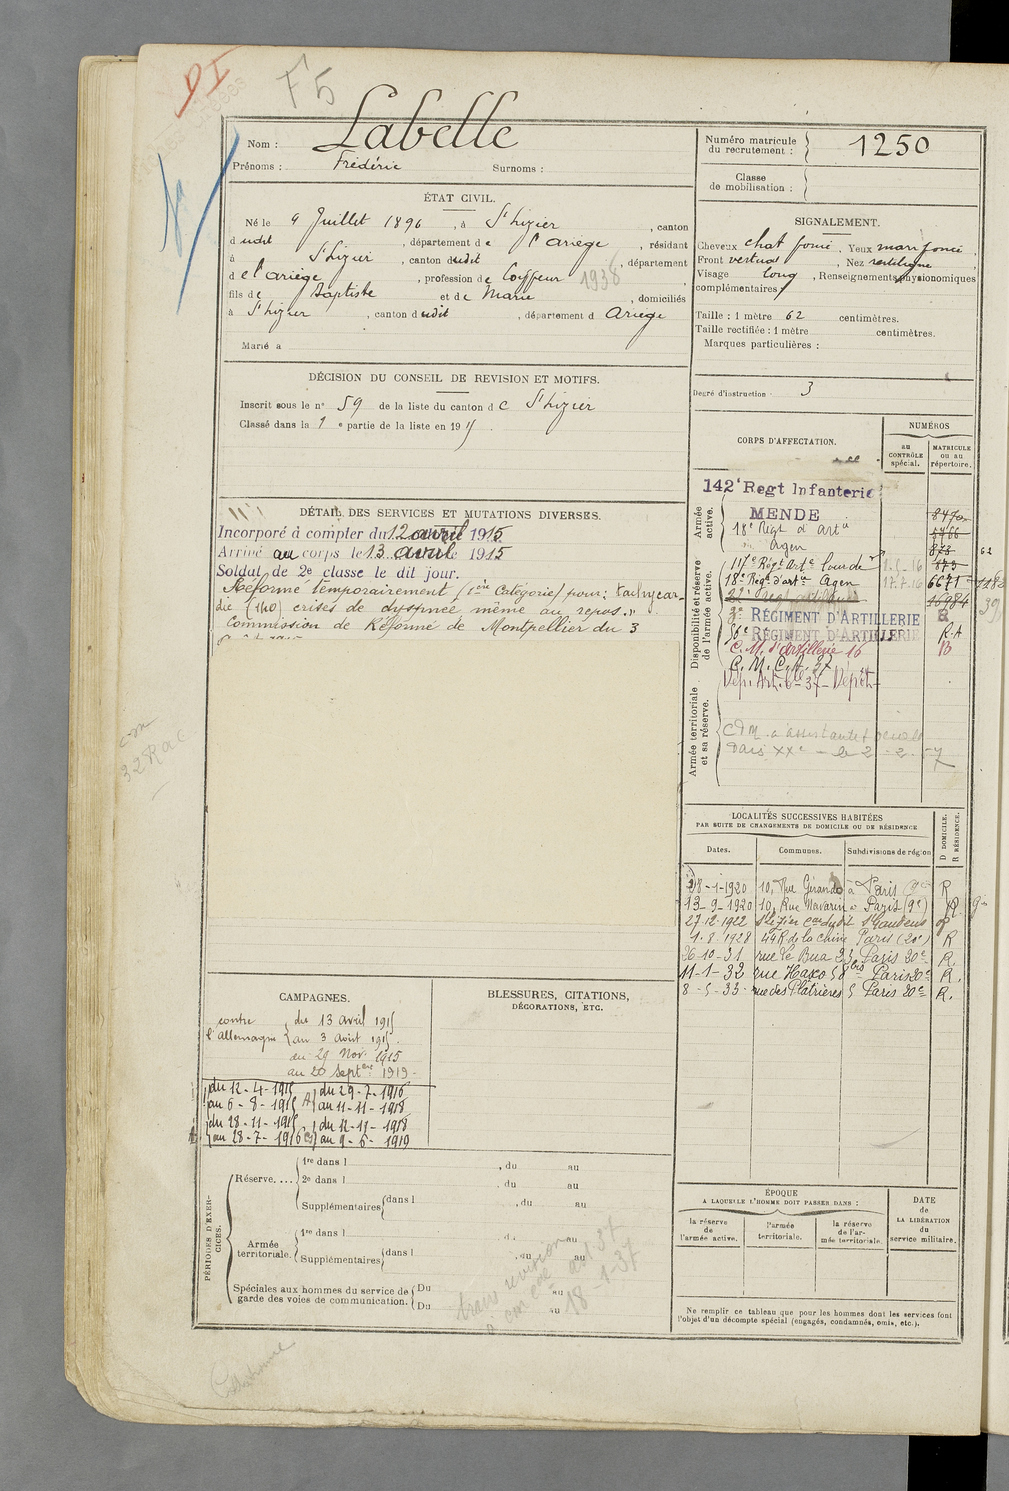 DI
F5
Nom : Labelle
Prénoms : Frédéric Surnoms :
Numéro matricule du recrutement : 1250
Classe de mobilisation :
ÉTAT CIVIL.
Né le 4 Juillet 1896, à St Lizier, canton
dudit, département de l'Ariège, résidant
à St Lizier, canton dudit, département
de l'Ariège, profession de Coiffeur 1938
fils de Baptiste et de Marie, domiciliés
à St Lizier, canton dudit, département d Ariège
Marié à
SIGNALEMENT.
Cheveux chat foncé, Yeux mar. foncé
Front vertical, Nez rectiligne
Visage long, Renseignements physionomiques
complémentaires :
Taille : 1 mètre 62 centimètres.
Taille rectifiée : 1 mètre centimètres.
Marques particulières :
Degré d'instruction 3
DÉCISION DU CONSEIL DE REVISION ET MOTIFS.
Inscrit sous le n° 59 de la liste du canton de St Lizier
Classé dans la 1e partie de la liste en 19
DÉTAIL DES SERVICES ET MUTATIONS DIVERSES.
Incorporé à compter du 12 avril 1915
Arrivé au corps le 13 avril 1915
Soldat de 2e classe le dit jour.
Réformé temporairement (1ère Catégorie) pour : tachycar-
die (140) crises de dyspnée même au repos."
Commission de Réforme de Montpellier du 3
CORPS D'AFFECTATION.
NUMÉROS
au CONTRÔLE spécial.
MATRICULE ou au répertoire.
Armée active.
142e Regt Infanterie
MENDE
18e Régt d'Artie
Agen
Disponibilité et réserve de l'armée active.
117e Régt Arte Lourde
18e Régt d'arte Agen 17.7.16 6671
16984
RÉGIMENT D'ARTILLERIE
RÉGIMENT D'ARTILLERIE R.A
C. M. d'artillerie 16 B
C. M. C. A. 37
Dép. Art. 37 - Dépôt
Armée territoriale et sa réserve.
Paris XXe
LOCALITÉS SUCCESSIVES HABITÉES
PAR SUITE DE CHANGEMENTS DE DOMICILE OU DE RÉSIDENCE
Dates. Communes. Subdivisions de région D DOMICILE. R RÉSIDENCE.
28-1-1920 10, Rue Gérando à Paris (9e) R
13-9-1920 10, Rue Navarin à Paris (9e) R.
27-12-1922 St Lizier con dudit St Gaudens
1-8-1928 44 R. de la Chine Paris (20e) R
26-10-31 rue Le Bua 23 Paris 20e R.
11-1-32 rue Haxo 58 bis Paris 20e R.
8-5-33 rue des Platrières 5 Paris 20e R.
CAMPAGNES.
contre l'allemagne
du 13 avril 1915
au 3 août 1915.
du 29 Nov. 1915
au 20 Septbre 1919
du 12-4-1915
au 6-8-1915
du 28-11-1915
au 28-7-1916
du 29-7-1916
au 11-11-1918
du 12-11-1918
au 9-6-1919
BLESSURES, CITATIONS,
DÉCORATIONS, ETC.
PÉRIODES D'EXERCICES.
Réserve.... 1re dans l , du au
2e dans l , du au
Supplémentaires dans l , du au
Armée territoriale. 1re dans l , du au
Supplémentaires dans l , du au
Spéciales aux hommes du service de garde des voies de communication. Du au
Du au
ÉPOQUE
A LAQUELLE L'HOMME DOIT PASSER DANS :
la réserve de l'armée active.
l'armée territoriale.
la réserve de l'armée territoriale.
DATE
de
LA LIBÉRATION
du
service militaire.
Ne remplir ce tableau que pour les hommes dont les services font
l'objet d'un décompte spécial (engagés, condamnés, omis, etc.).